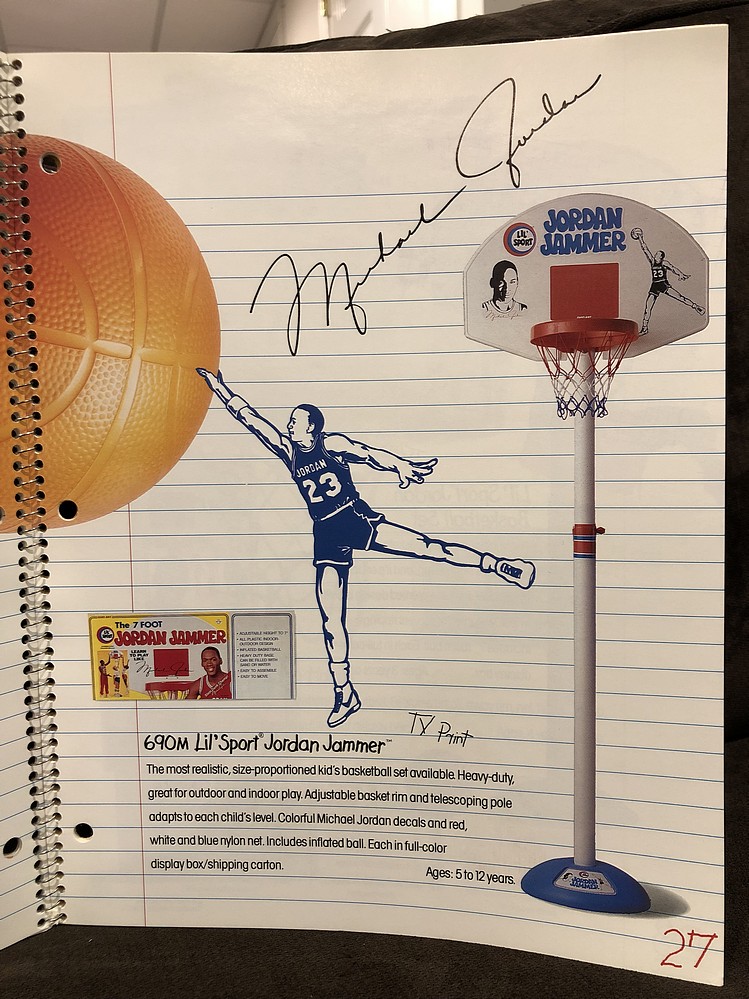 Michael Jordan
LIL'
SPORT
JORDAN
JAMMER
23
JORDAN
23
The 7 FOOT
JORDAN JAMMER
LEARN
TO PLAY
LIKE
• ADJUSTABLE HEIGHT TO 7'
• ALL PLASTIC INDOOR-
OUTDOOR DESIGN
• INFLATED BASKETBALL
• HEAVY DUTY BASE
CAN BE FILLED WITH
SAND OR WATER
• EASY TO ASSEMBLE
• EASY TO MOVE
TX Print
690M Lil' Sport® Jordan Jammer™
The most realistic, size-proportioned kid's basketball set available. Heavy-duty,
great for outdoor and indoor play. Adjustable basket rim and telescoping pole
adapts to each child's level. Colorful Michael Jordan decals and red,
white and blue nylon net. Includes inflated ball. Each in full-color
display box/shipping carton.
Ages: 5 to 12 years.
JORDAN
JAMMER
27